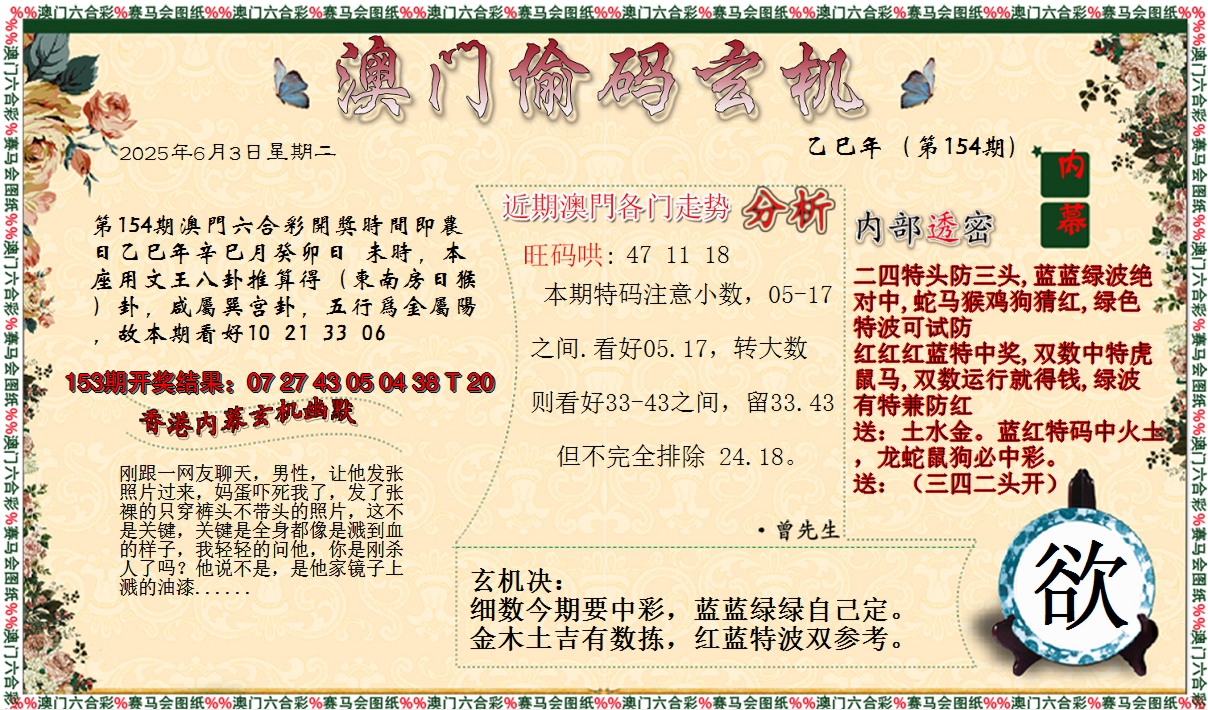 %%澳门六合彩%赛马会图纸%%澳门六合彩%赛马会图纸%%澳门六合彩%赛马会图纸%%澳门六合彩%赛马会图纸%%澳门六合彩%赛马会图纸%%澳门六合彩%赛马会图纸%%
澳门偷码玄机
2025年6月3日星期二
乙巳年（第154期）
第154期澳門六合彩開獎時間即農
日乙巳年辛巳月癸卯日 未時，本
座用文王八卦推算得（東南房日猴
）卦，咸屬巽宫卦，五行爲金屬陽
，故本期看好10 21 33 06
153期开奖结果：07 27 43 05 04 38 T 20
香港内幕玄机幽默
刚跟一网友聊天，男性，让他发张
照片过来，妈蛋吓死我了，发了张
裸的只穿裤头不带头的照片，这不
是关键，关键是全身都像是溅到血
的样子，我轻轻的问他，你是刚杀
人了吗？他说不是，是他家镜子上
溅的油漆......
近期澳門各门走势 分析
旺码哄: 47 11 18
本期特码注意小数，05-17
之间.看好05.17，转大数
则看好33-43之间，留33.43
但不完全排除 24.18。
·曾先生
内幕
内部透密
二四特头防三头,蓝蓝绿波绝
对中,蛇马猴鸡狗猜红,绿色
特波可试防
红红红蓝特中奖,双数中特虎
鼠马,双数运行就得钱,绿波
有特兼防红
送：土水金。蓝红特码中火土
，龙蛇鼠狗必中彩。
送：（三四二头开）
玄机决：
细数今期要中彩，蓝蓝绿绿自己定。
金木土吉有数拣，红蓝特波双参考。
欲
%%澳门六合彩%赛马会图纸%%澳门六合彩%赛马会图纸%%澳门六合彩%赛马会图纸%%澳门六合彩%赛马会图纸%%澳门六合彩%赛马会图纸%%澳门六合彩%赛马会图纸%%